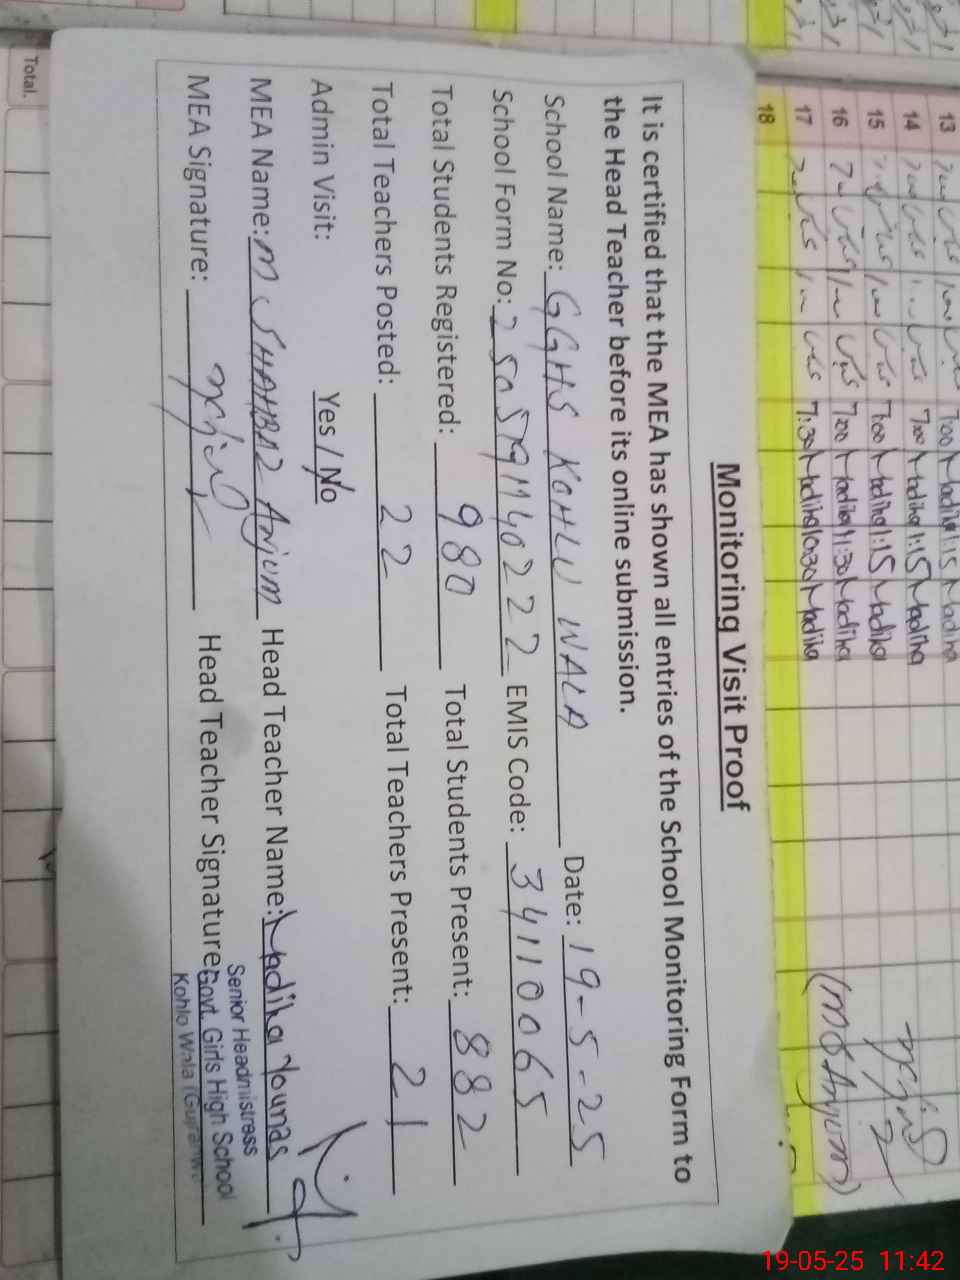 Monitoring Visit Proof
It is certified that the MEA has shown all entries of the School Monitoring Form to
the Head Teacher before its online submission.
School Name: GGHS KOHLU WALA Date: 19-5-25
School Form No: 25057914022 EMIS Code: 34110065
Total Students Registered: 980 Total Students Present: 882
Total Teachers Posted: 22 Total Teachers Present: 21
Admin Visit: Yes / No
MEA Name: M SHAHBAZ Anjum Head Teacher Name: Madiha Younas
MEA Signature: Head Teacher Signature:
Senior Headmistress
Govt. Girls High School
Kohlo Wala (Gujranwala
13 7:00 Madiha 1:15 Madiha
14 7:00 Madiha 1:15 Madiha
15 7:00 Madiha 1:15 Madiha
16 7:00 Madiha 11:30 Madiha
17 7:30 Madiha 10:30 Madiha
18
Total.
19-05-25 11:42